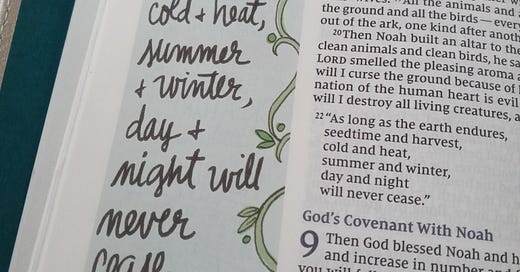 cold + heat,
summer
+ winter,
day +
night will
never
cease
the ground and all the birds—every
out of the ark, one kind after anoth
20Then Noah built an altar to the
clean animals and clean birds, he sa
LORD smelled the pleasing aroma a
will I curse the ground because of
nation of the human heart is evil
will I destroy all living creatures, a
22 “As long as the earth endures,
seedtime and harvest,
cold and heat,
summer and winter,
day and night
will never cease.”
God’s Covenant With Noah
9 Then God blessed Noah and h
and increase in number and